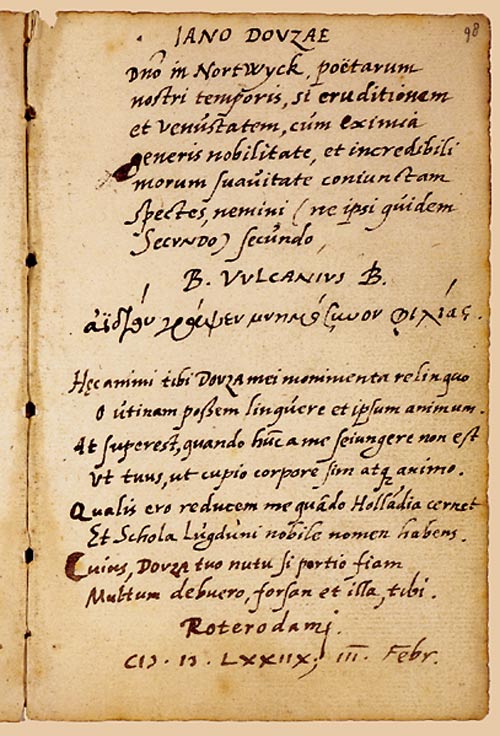 98
IANO DOVZAE
Dño in Nortwyck, poëtarum
nostri temporis, si eruditionem
et venustatem, cùm eximia
generis nobilitate, et incredibili
morum suavitate coniunctam
spectes, nemini (ne ipsi quidem
SECVNDO) secundo,
B. VVLCANIVS B.
ἀΐδιον γράψεν μνημόσυνον φιλίας.
Hęc animi tibi DOVZA mei monimenta relinquo
O utinam possem linquere et ipsum animum.
At superest, quando hũc a me seiungere non est
Vt tuus, ut cupio corpore sim atq; animo.
Qualis ero reducem me quãdo Hollãdia cernet
Et Schola Lugduni nobile nomen habens.
Cuius, DOVZA tuo nutu si portio fiam
Multum debuero, forsan et illa, tibi.
Roterodami.
CIↃ. IↃ. LXXIIX, III. Febr.